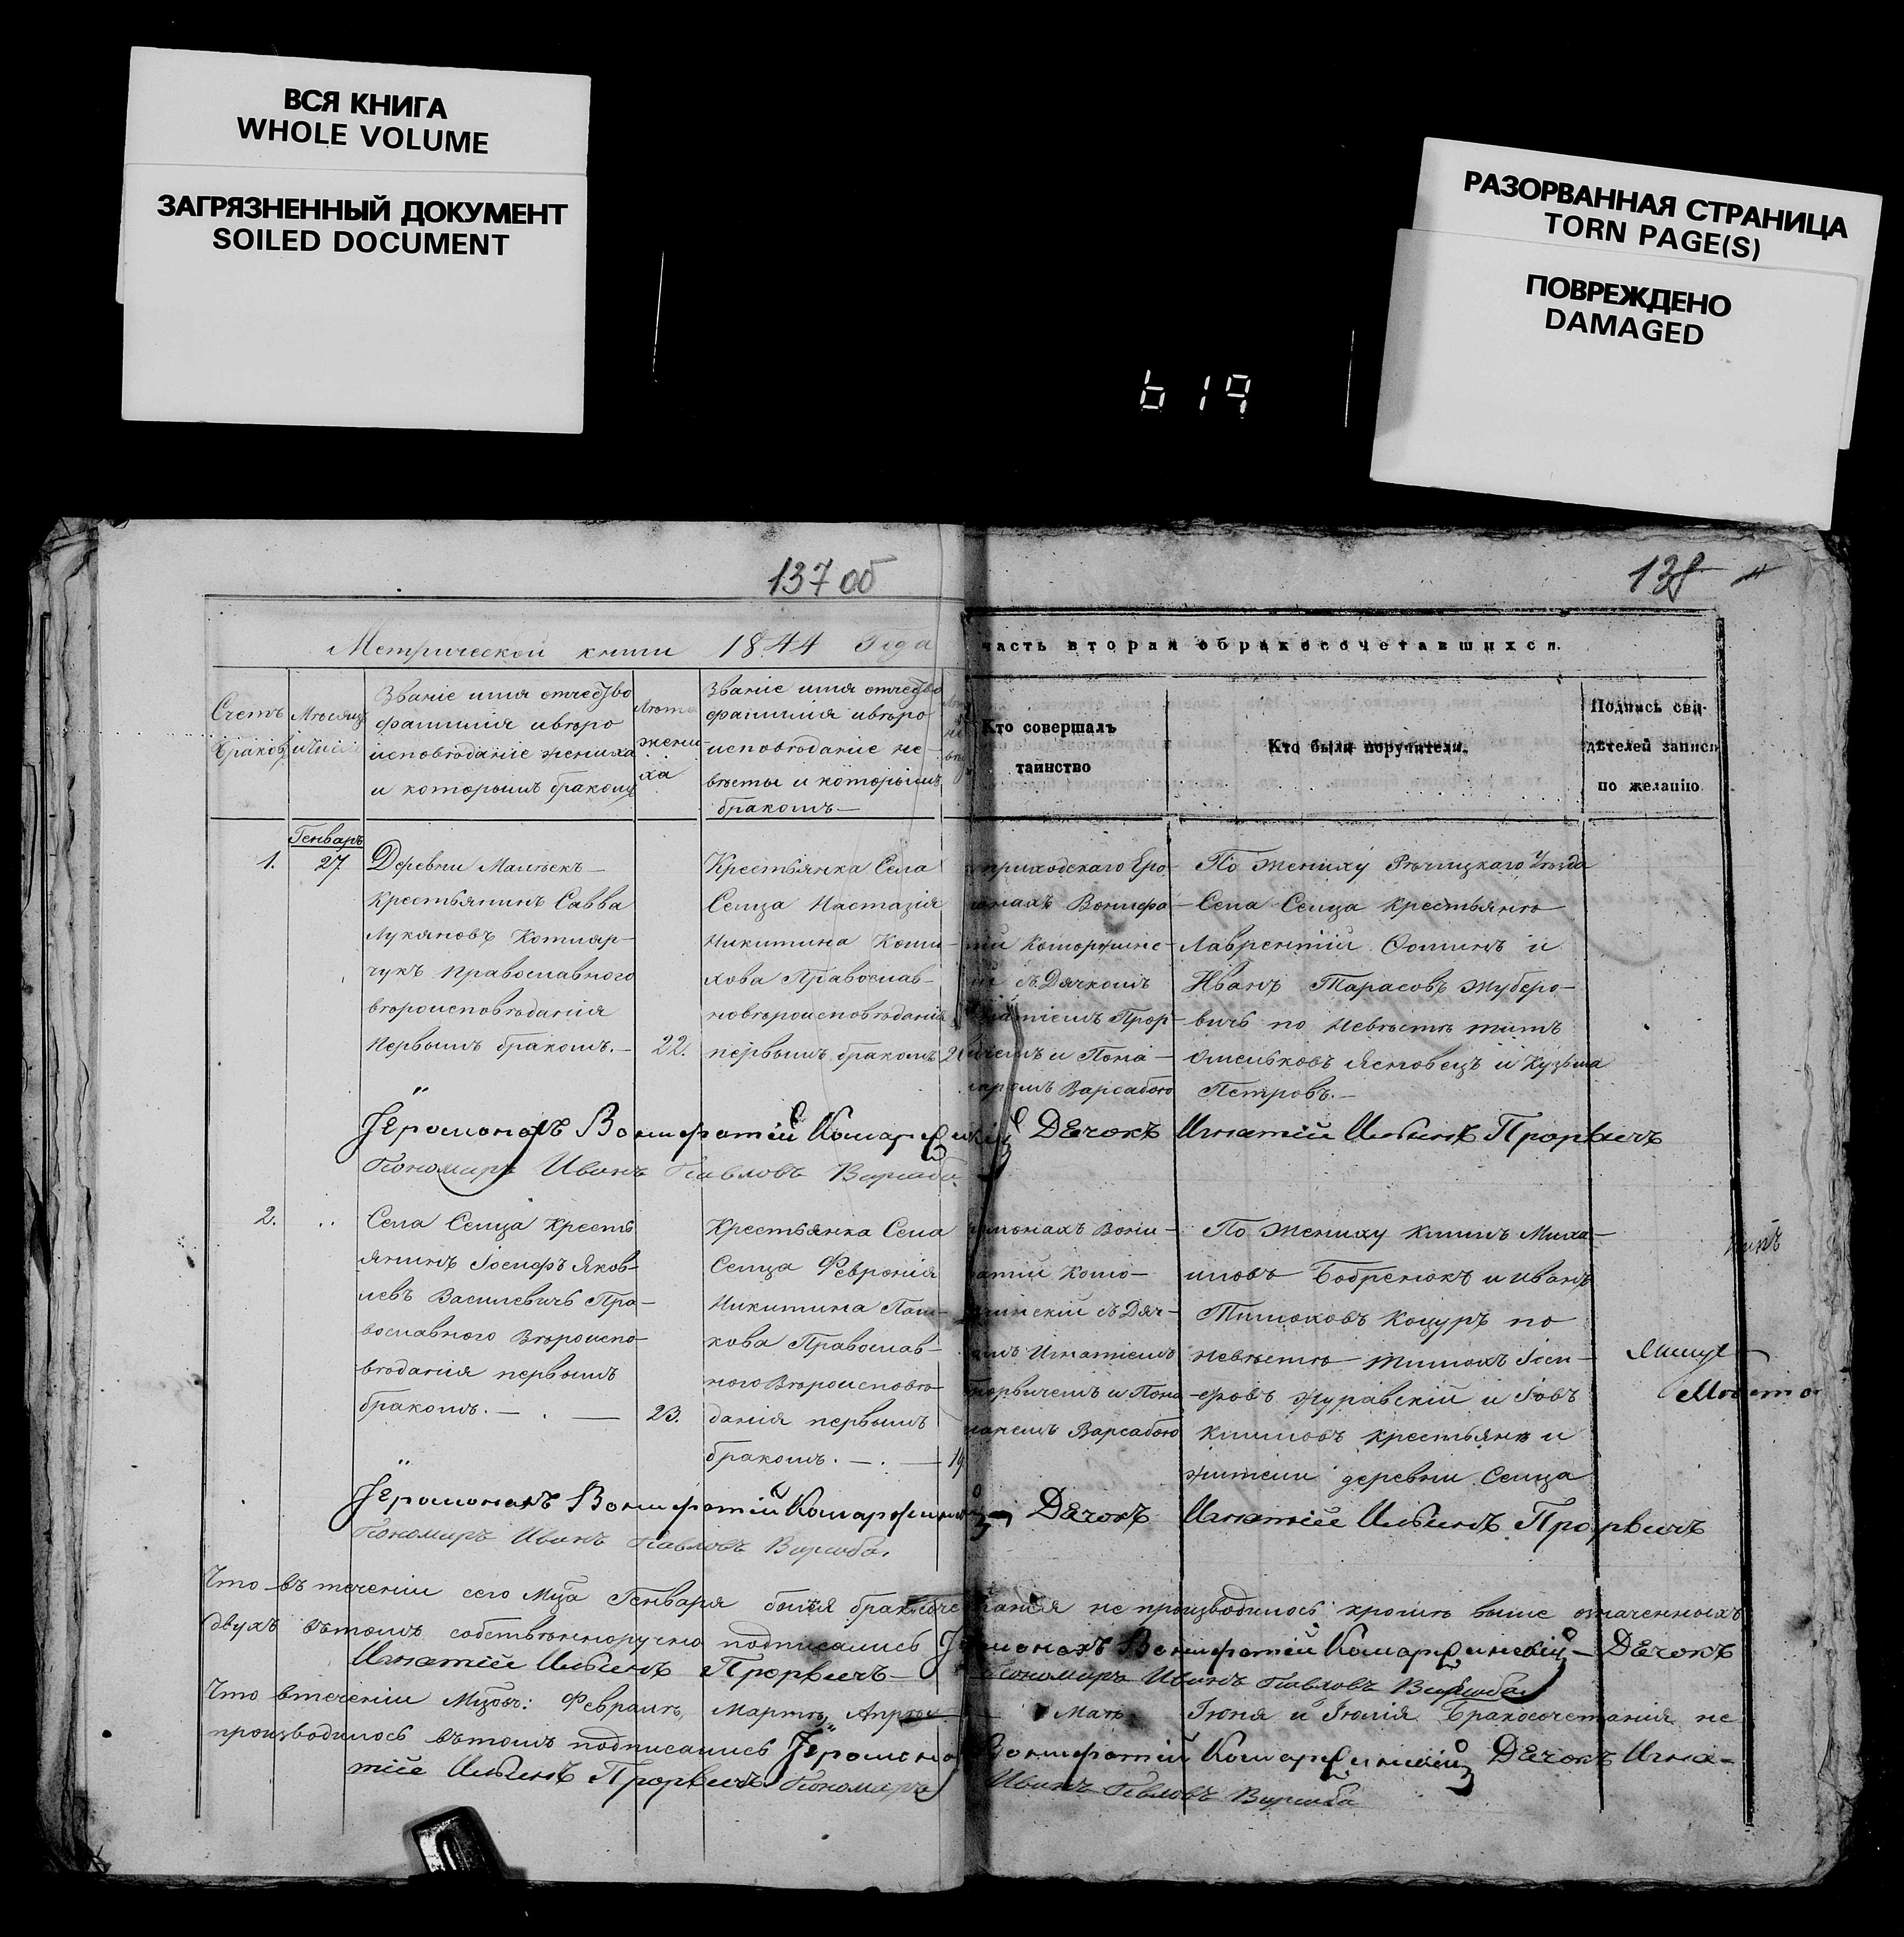 ВСЯ КНИГА
WHOLE VOLUME
ЗАГРЯЗНЕННЫЙ ДОКУМЕНТ
SOILED DOCUMENT
РАЗОРВАННАЯ СТРАНИЦА
TORN PAGE(S)
ПОВРЕЖДЕНО
DAMAGED
619
137 об
138
Метрической книги 1844 Года
часть вторая о бракосочетавшихся.
Счетъ
браковъ
Мѣсяцъ
и число
Званіе имя отчество
фамилія и вѣро
исповѣданіе жениха
и которымъ бракомъ
Лѣта
жени-
ха
Званіе имя отчество
фамилія и вѣро
исповѣданіе не-
вѣсты и которымъ
бракомъ
Кто совершалъ
таинство
Кто были поручители.
Подпись сви-
дѣтелей записи
по желанію
Генварь
1.
27.
Деревни
Крестьянинъ Савва
Лукяновъ Котляр-
чукъ православного
вѣроисповѣданія
Первымъ бракомъ.
22.
Крестьянка Села
Селца Настазія
Никитина
Православ-
новѣроисповѣданія
первымъ бракомъ
приходскаго Еро-
монахъ Вонифа-
съ Дячкомъ
и Пона-
Варсабою
По жениху Рѣчицкаго Уѣзда
Села Селца крестьяне
Лаврентій Ѳоминъ и
Иванъ Тарасовъ Жуберо-
вичъ по Невѣстѣ Титъ
Омельковъ Ясновецъ и Кузьма
Петровъ.
Іеромонахъ Вонифатій Комаржинскій Дечокъ Игнатій Ильинъ Прорвичъ
Пономарь Иванъ Павловъ Варсаба
2.
Села Селца Кресть
янинъ Іосифъ Яков-
левъ Василевичъ Пра-
вославного Вѣроиспо-
вѣданія первымъ
бракомъ.
23.
Крестьянка Села
Селца Февронія
Никитина Паш-
кова Православ-
ного Вѣроисповѣ-
данія первымъ
бракомъ.
19
монахъ Вони-
фатій Комо-
ржинскій съ Дяч-
комъ Игнатіемъ
Прорвичемъ и Поно-
маремъ Варсабою
По жениху Климъ Миха-
иловъ Бобренокъ и Иванъ
Тимоховъ Коцуръ по
невѣстѣ Тимохъ Іоси-
фовъ Журавскій и Іовъ
Климовъ крестьяне и
жители деревни Селца
Іеромонахъ Вонифатій Комаржинскій Дечокъ Игнатій Ильинъ Прорвичъ
Пономарь Иванъ Павловъ Варсаба.
Что въ теченіи сего Мца Генваря болѣя бракосочетанія не производилось кромѣ выше означенныхъ
двухъ въ томъ собственноручно подписались Іеромонахъ Вонифатій Комаржинскій Дечокъ
Игнатій Ильинъ Прорвичъ Пономарь Иванъ Павловъ Варсаба
Что втеченіи Мцовъ: Февраля, Марта, Апреля Маія Іюня и Іюлія Бракосочетанія не
производилось въ томъ подписались Іеромонахъ Вонифатій Комаржинскій Дечокъ Игна-
тій Ильинъ Прорвичъ Пономарь Иванъ Павловъ Варсаба